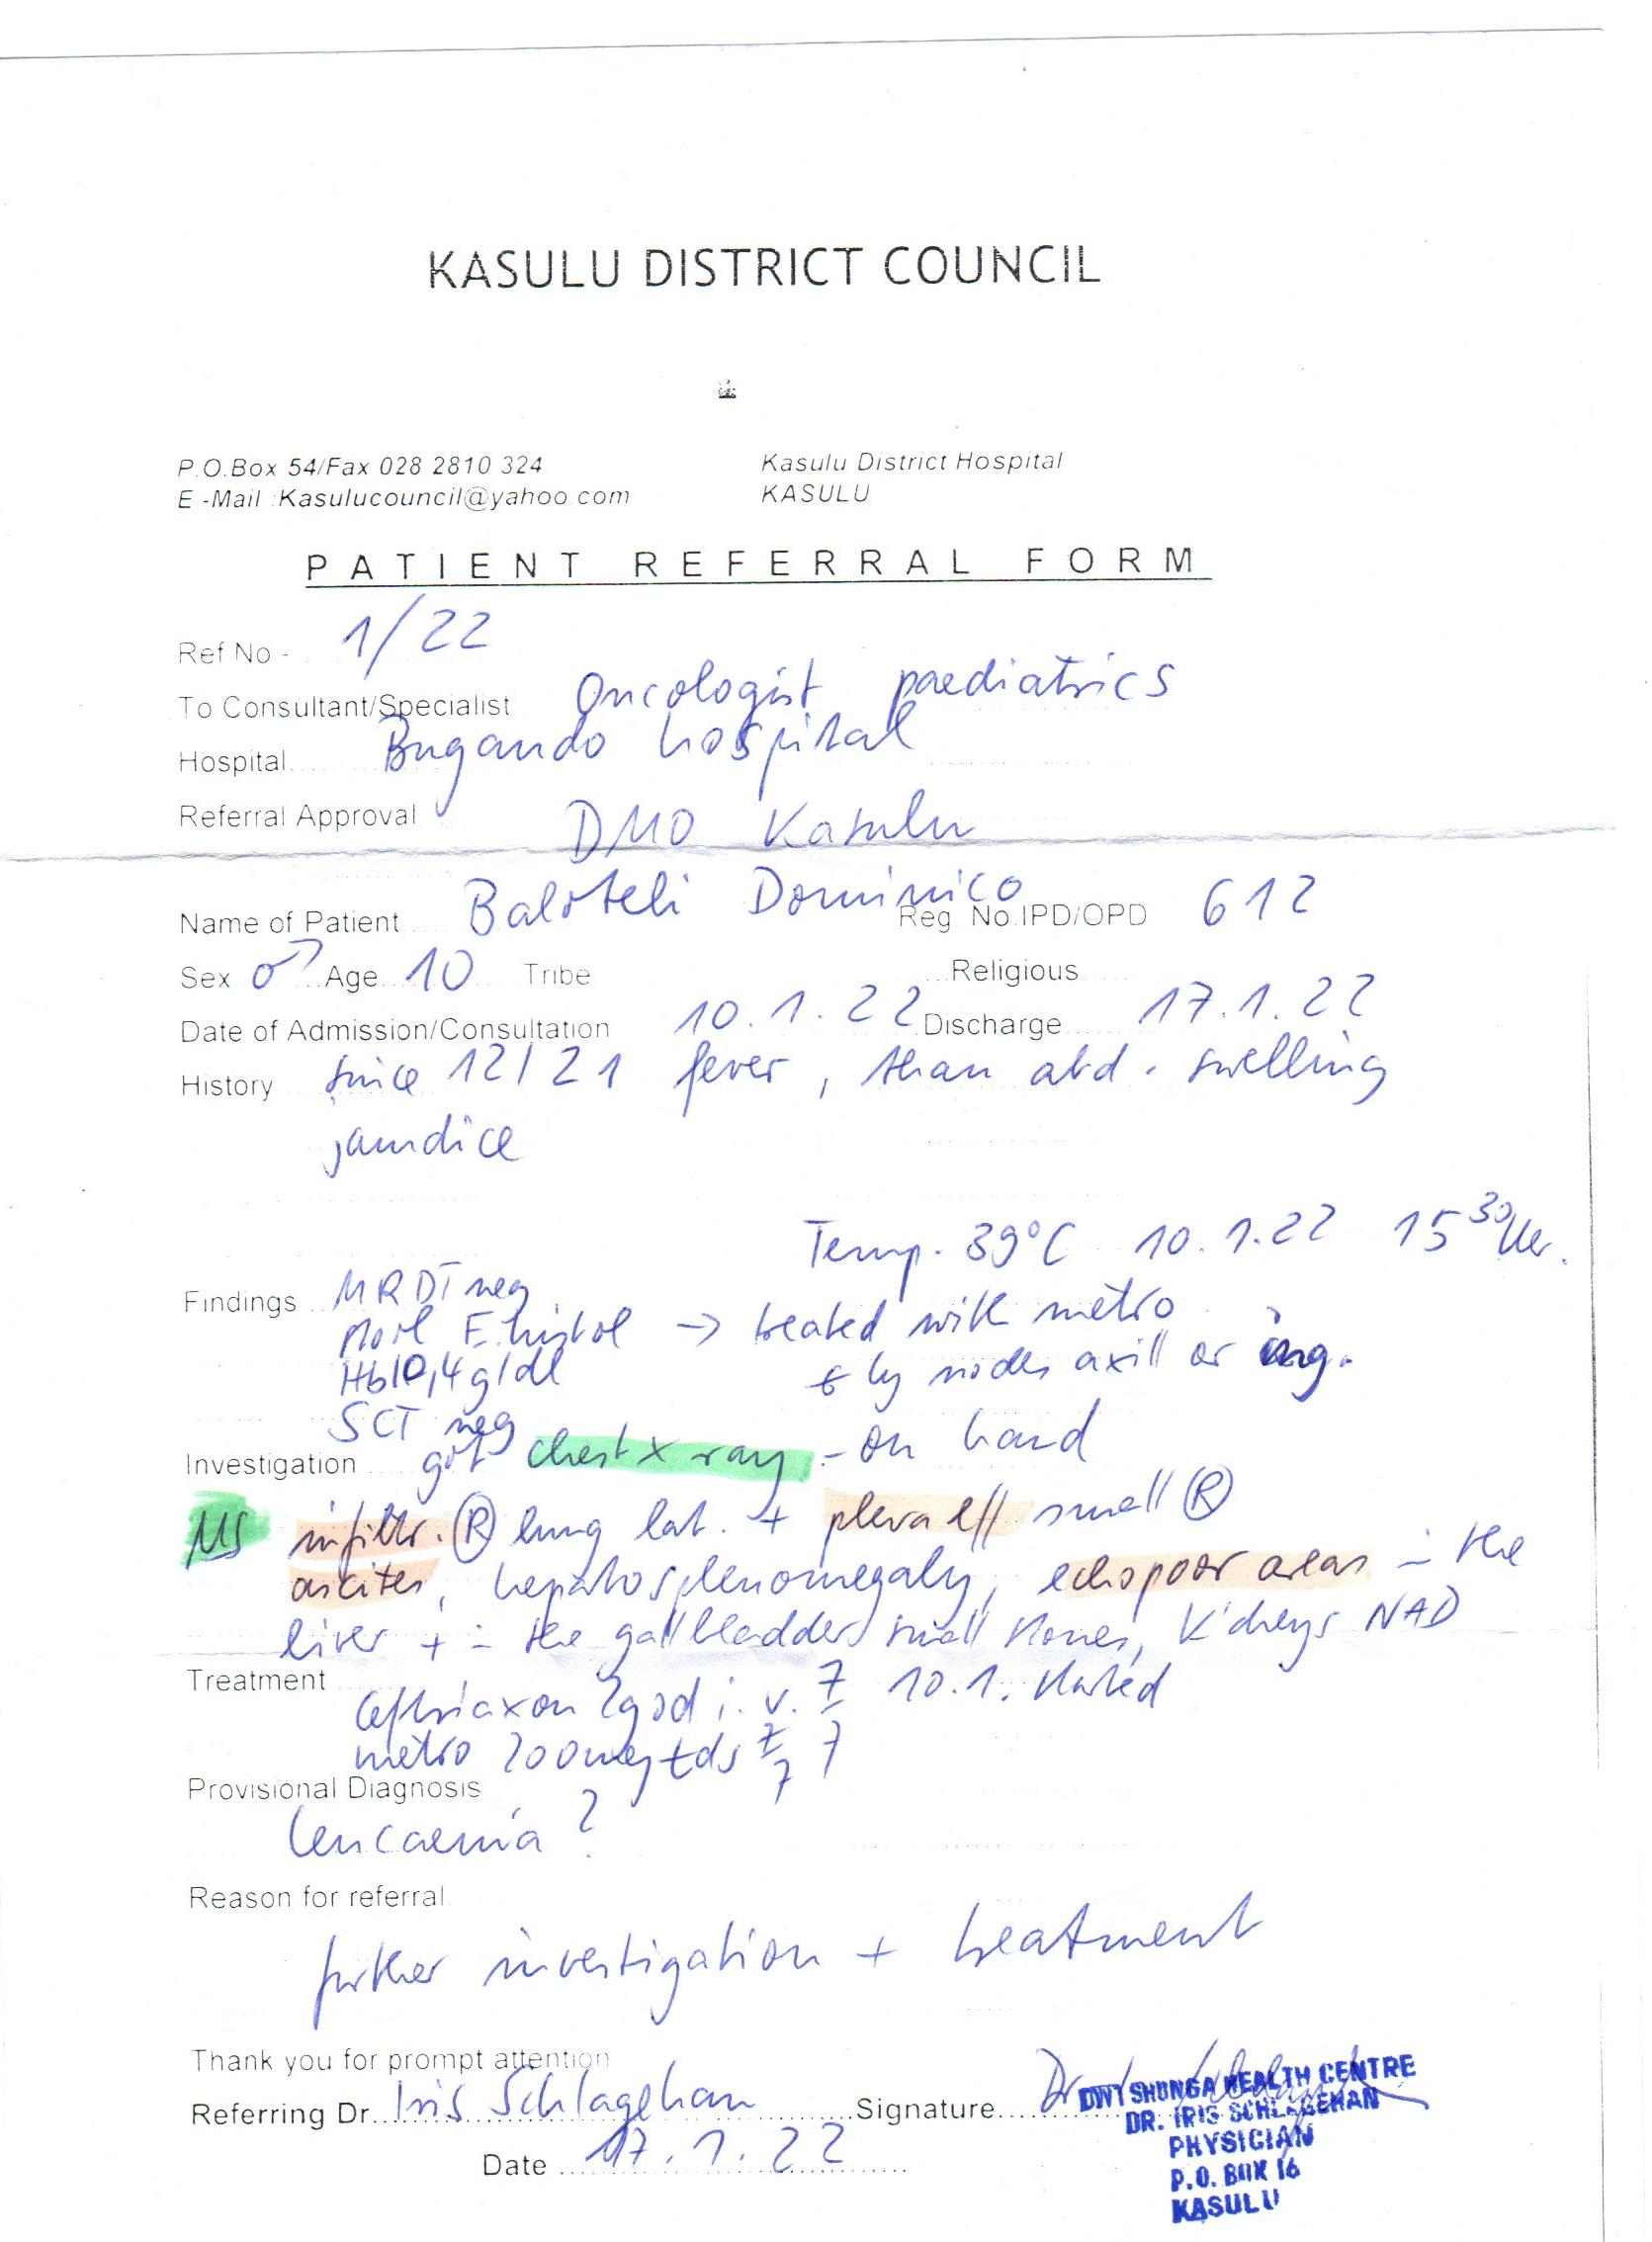 KASULU DISTRICT COUNCIL
P.O.Box 54/Fax 028 2810 324
E -Mail :Kasulucouncil@yahoo.com
Kasulu District Hospital
KASULU
PATIENT REFERRAL FORM
Ref No - 1/22
To Consultant/Specialist Oncologist paediatrics
Hospital Bugando hospital
Referral Approval DMO Kasulu
Name of Patient Baloteli Dominico Reg No.IPD/OPD 612
Sex ♂ Age 10 Tribe Religious
Date of Admission/Consultation 10.1.22 Discharge 17.1.22
History since 12/21 fever, than abd. swelling
jaundice
Temp. 39°C 10.1.22 15 30
Findings MRDT neg
E. histol → treated with metro
Hb 10,4 g/dl ly nodes axill or ing.
SCT neg
Investigation got chest x ray - on hand
US infiltr. Ⓡ lung lat. + pleva eff small Ⓡ
ascites, hepatosplenomegaly, echopoor areas in the
liver + in the gallbladder small stones, K'dneys NAD
Treatment Ceftriaxon 2g od i.v. 10.1. started
metro 200mg tds
Provisional Diagnosis
leucaemia?
Reason for referral
further investigation + treatment
Thank you for prompt attention
Referring Dr. Iris Schlagehan Signature Dr
Date 17.1.22
HEALTH CENTRE
DR. IRIS SCHLAGEHAN
PHYSICIAN
P.O. BOX 16
KASULU